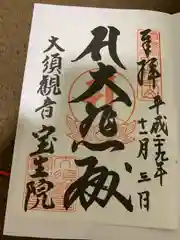 奉拝
平成二十九年
月三日
大悲殿
大須観音
宝生院